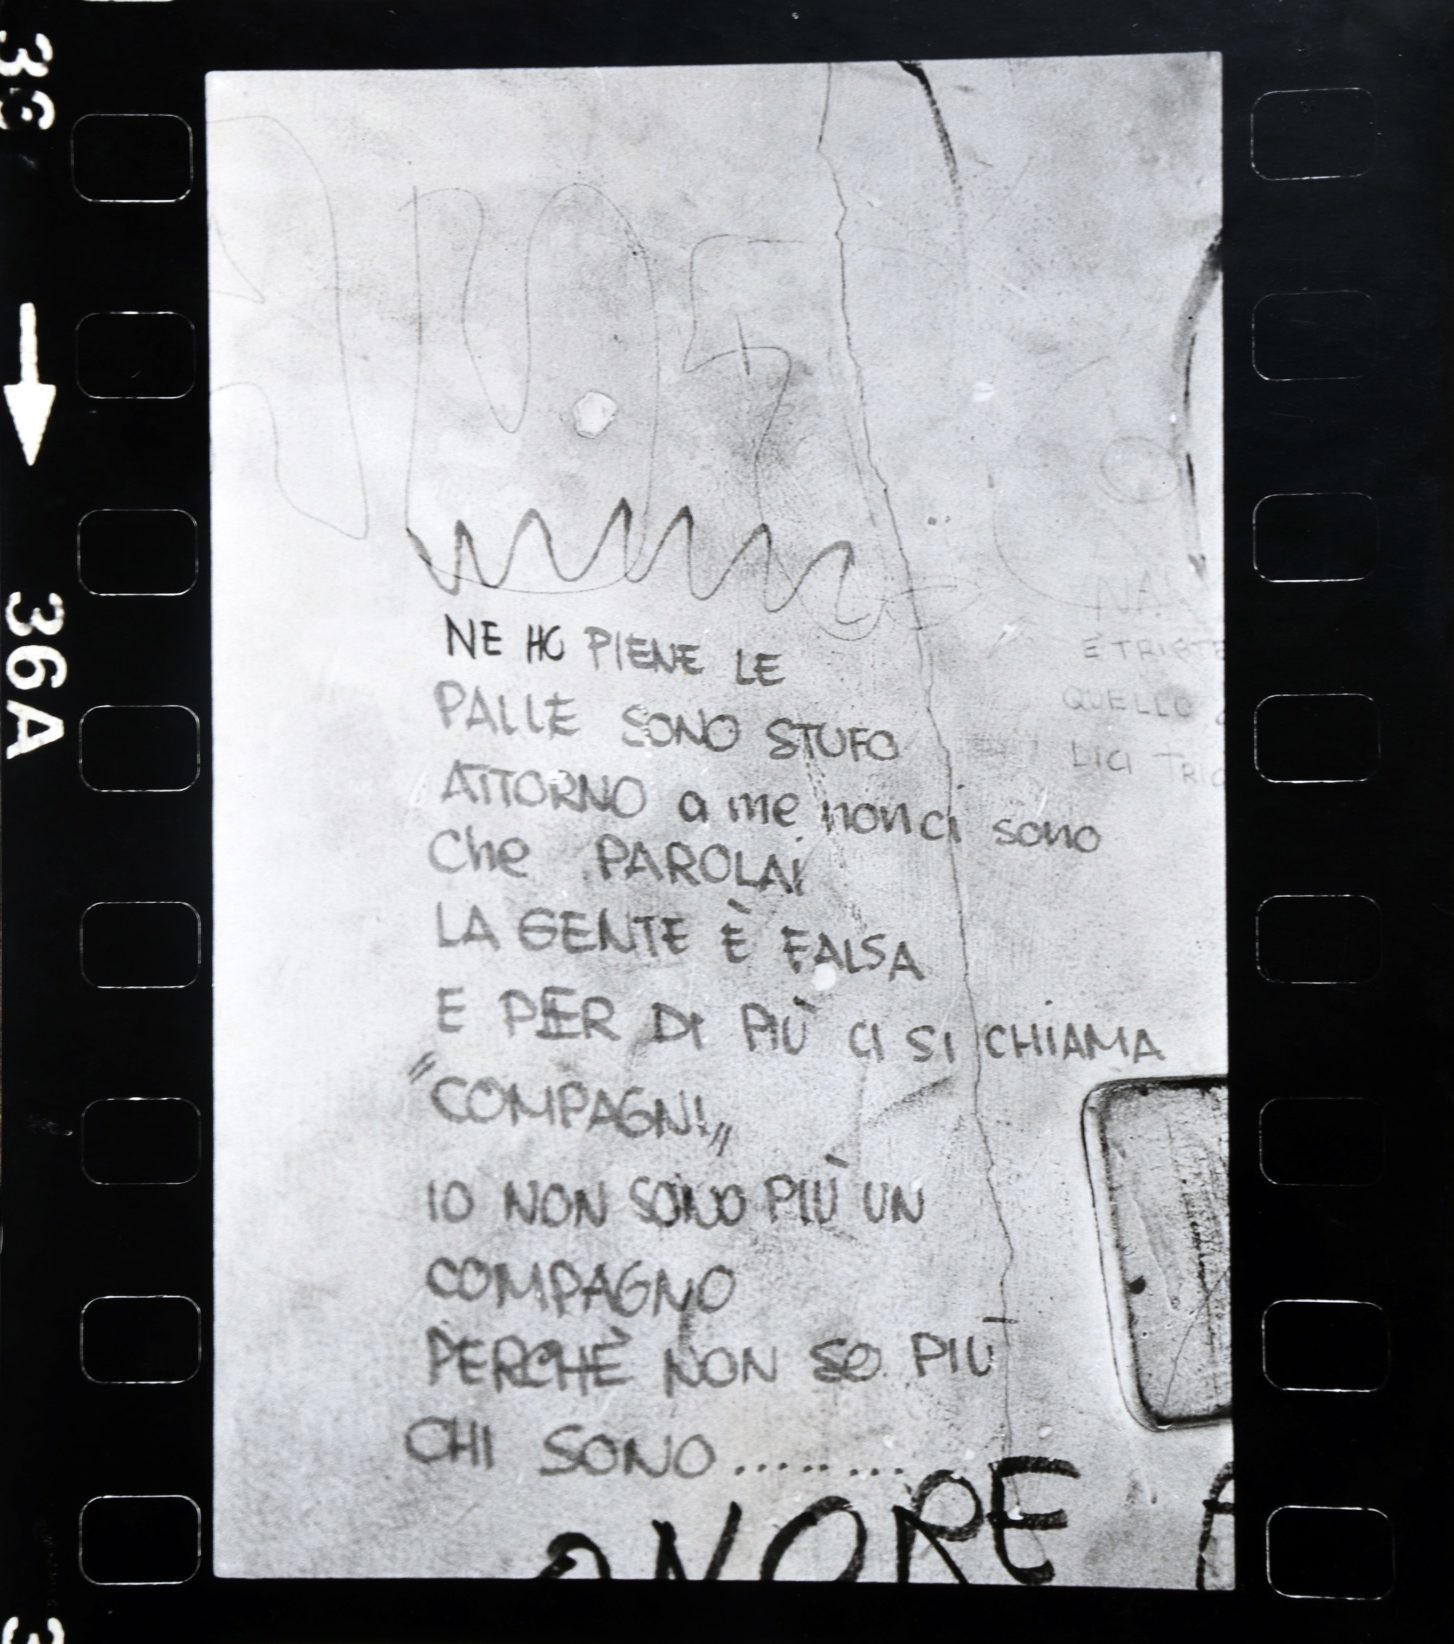 NE HO PIENE LE
PALLE SONO STUFO
ATTORNO a me non ci sono
Che PAROLAI
LA GENTE È FALSA
E PER DI PIÙ CI SI CHIAMA
"COMPAGNI„
IO NON SONO PIÙ UN
COMPAGNO
PERCHÈ NON SO PIÙ
CHI SONO.........
ONORE A
È TRISTE
QUELLO
DICI
36
36A